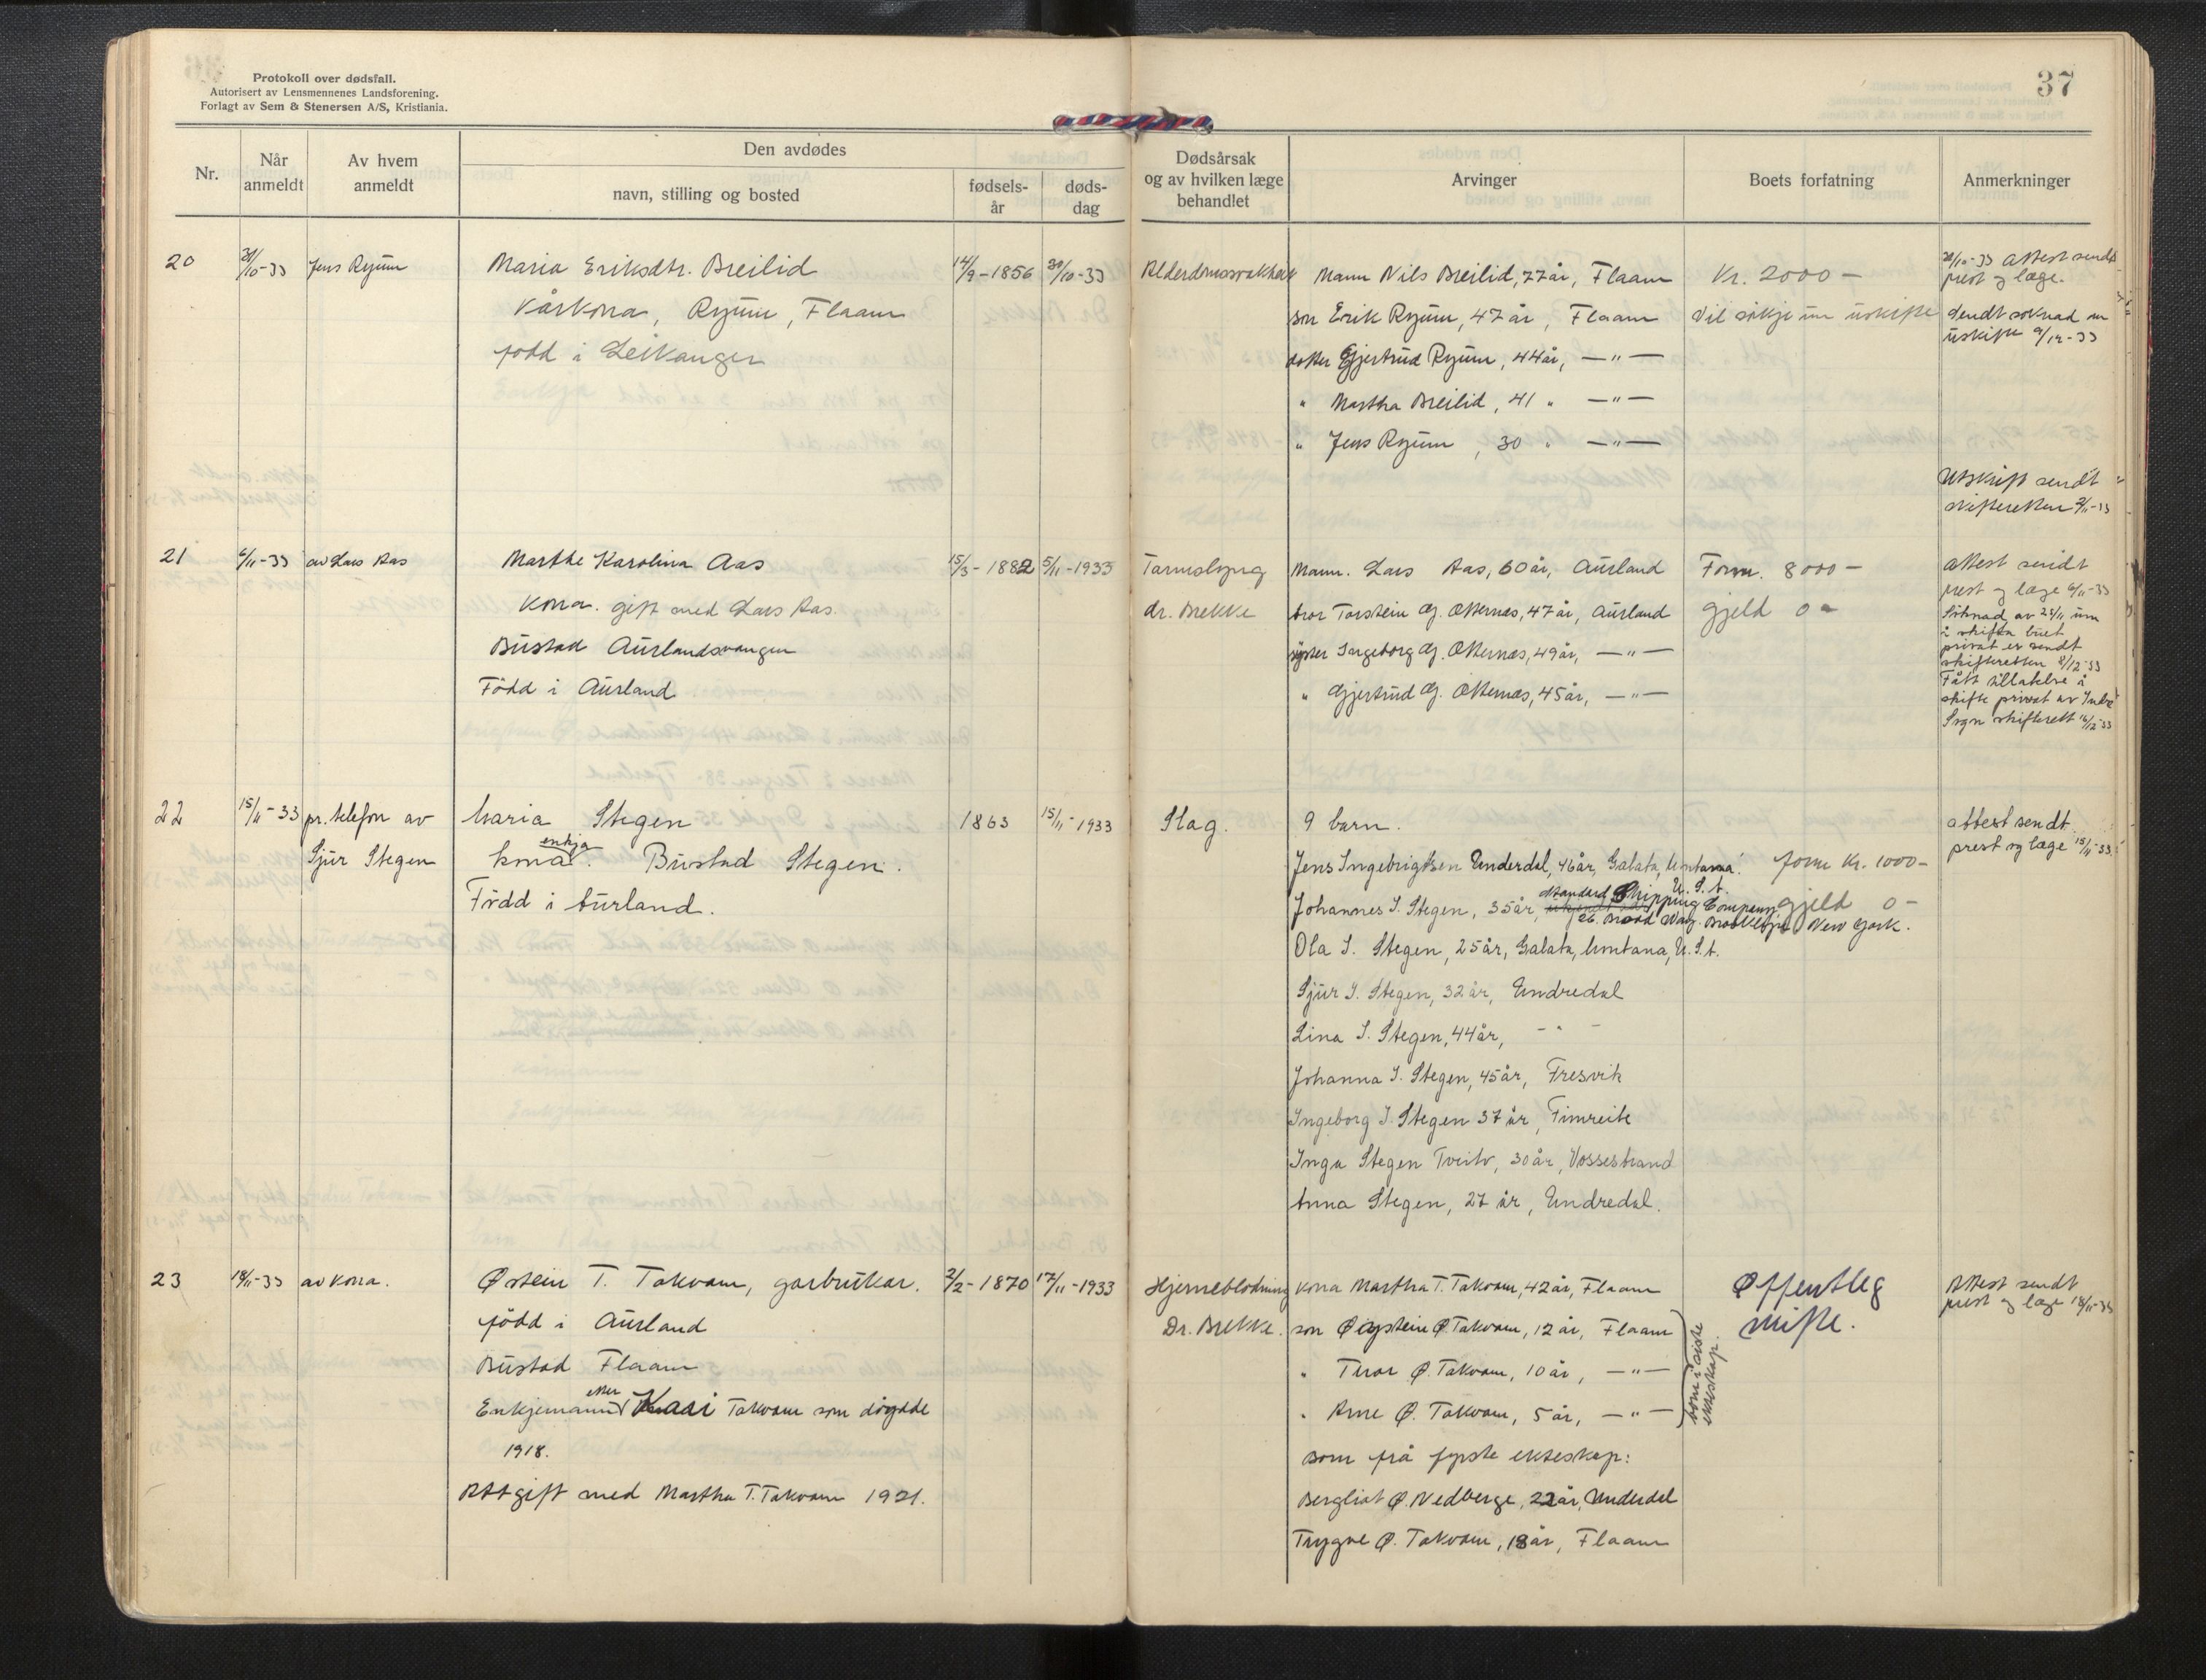 Protokoll over dødsfall.
Autorisert av Lensmennenes Landsforening.
Forlagt av Sem & Stenersen A/S, Kristiania.
37
Nr.
Når anmeldt
Av hvem anmeldt
Den avdødes
navn, stilling og bosted
fødsels-år
døds-dag
Dødsårsak og av hvilken læge behandlet
Arvinger
Boets forfatning
Anmerkninger
20
30/10-33
Jens Ryum
Maria Eriksdtr. Breilid
Kårkona, Ryum, Flaam
född i Leikanger
14/9-1856
30/10-33
Alderdomssvakheit
Mann Nils Breilid, 77 år, Flaam
son Erik Ryum, 47 år, Flaam
dotter Gjertrud Ryum, 44 år, —"—
" Martha Breilid, 41 " —"—
" Jens Ryum, 30 " —"—
Kr. 2000 —
Vil sökje um uskifte
30/10-33 Attest sendt
prest og læge.
Sendt soknad um
uskifte 9/12-33
Utskrift sendt
skifteretten 2/11-33
21
6/11-33
av Lars Aas
Marthe Karolina Aas
Kona. gift med Lars Aas.
Bustad Aurlandsvangen
Född i Aurland
15/3-1882
5/11-1933
Tarmslyng
dr. Brekke
Mann. Lars Aas, 60 år, Aurland
bror Torstein G. Otternes, 47 år, Aurland
syster Ingeborg G. Otternes, 49 år, —"—
" Gjertrud G. Otternes, 45 år, —"—
Form. 8000 —
gjeld 0 —
Attest sendt
prest og læge 6/11-33
Söknad av 23/11 um
å skifta buet
privat er sendt
skifteretten 8/12-33
Fått tillatelse å
skifte privat av Indre
Sogn skifterett 16/12-33
22
15/11-33
pr. telefon av
Sjur Stegen
Maria Stegen
enkja
kona. Bustad Stegen.
Född i Aurland.
1863
15/11-1933
Slag.
9 barn.
Jens Ingebrigtsen Underdal, 46 år, Galata, Montana.
U. S. A.
Standard Shipping Company
Johannes I. Stegen, 35 år,
26 Broad Way. Brooklyn New York.
Ola I. Stegen, 25 år, Galata, Montana, U. S. A.
Sjur I. Stegen, 32 år, Undredal
Lina I. Stegen, 44 år, - " -
Johanna I. Stegen, 45 år, Fresvik
Ingeborg I. Stegen 37 år, Fimreite
Inga Stegen Tveito, 30 år, Vossestrand
Anna Stegen, 27 år, Undredal.
form Kr. 1000 —
gjeld 0 —
attest sendt
prest og læge 15/11-33.
23
18/11-33
av kona.
Østein T. Takvam, garbrukar.
född i Aurland
Bustad Flaam
etter
Enkjemann Kari Takvam som döydde
1918.
Attgift med Martha T. Takvam 1921.
2/2-1870
17/11-1933
Hjerneblodning
Dr. Brekke.
Kona Martha T. Takvam, 42 år, Flaam
son Øystein Ø. Takvam, 12 år, Flaam
" Ø. Takvam, 10 år, —"—
" Arne Ø. Takvam, 5 år, —"—
born i siste
ekteskap.
Born frå fyrste ekteskap:
Bergliot Ø. Nedberge, 22 år, Underdal
Trygve Ø. Takvam, 18 år, Flaam
Offentleg
skifte.
Attest sendt
prest og læge 18/11-33